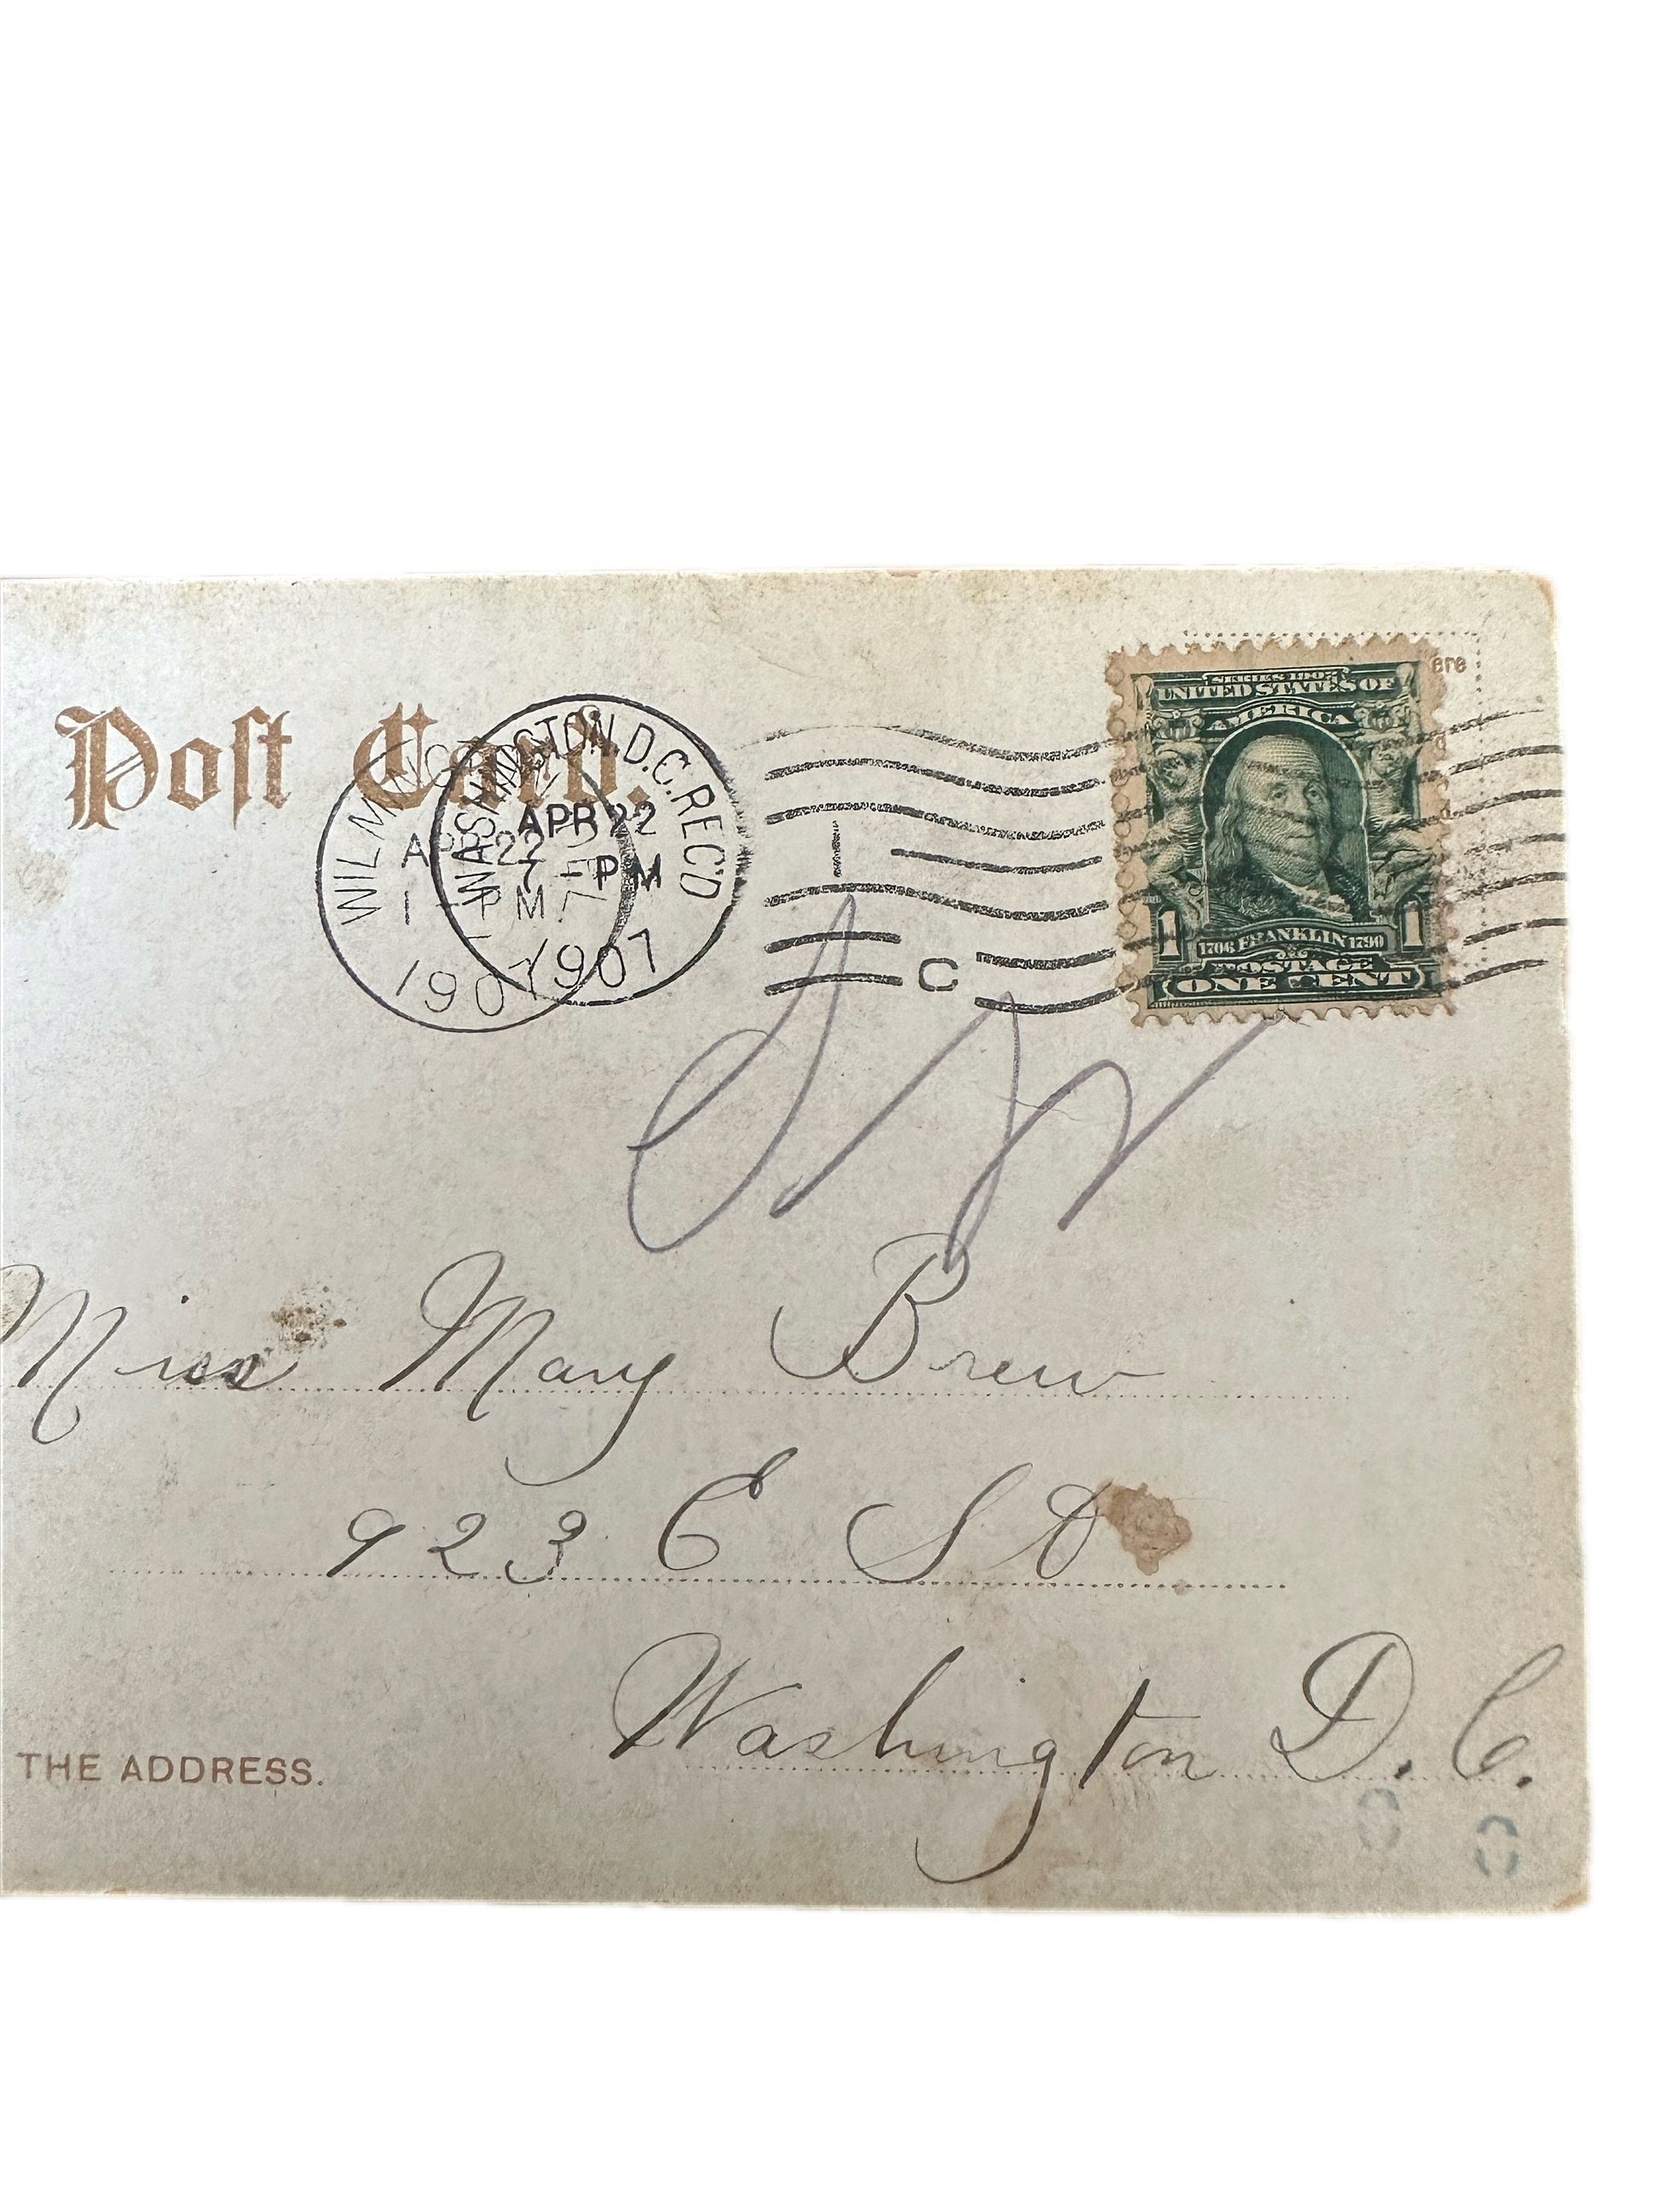 Post Card.
WASHINGTON D.C. REC'D
APR 22
7 PM
1907
WILMING
APR 22
1 PM
1907
1
C
ere
SERIES 1902
UNITED STATES OF
AMERICA
1706 FRANKLIN 1790
1 1
POSTAGE
ONE CENT
Miss Mary Brew
923 E St
Washington D. C.
THE ADDRESS.